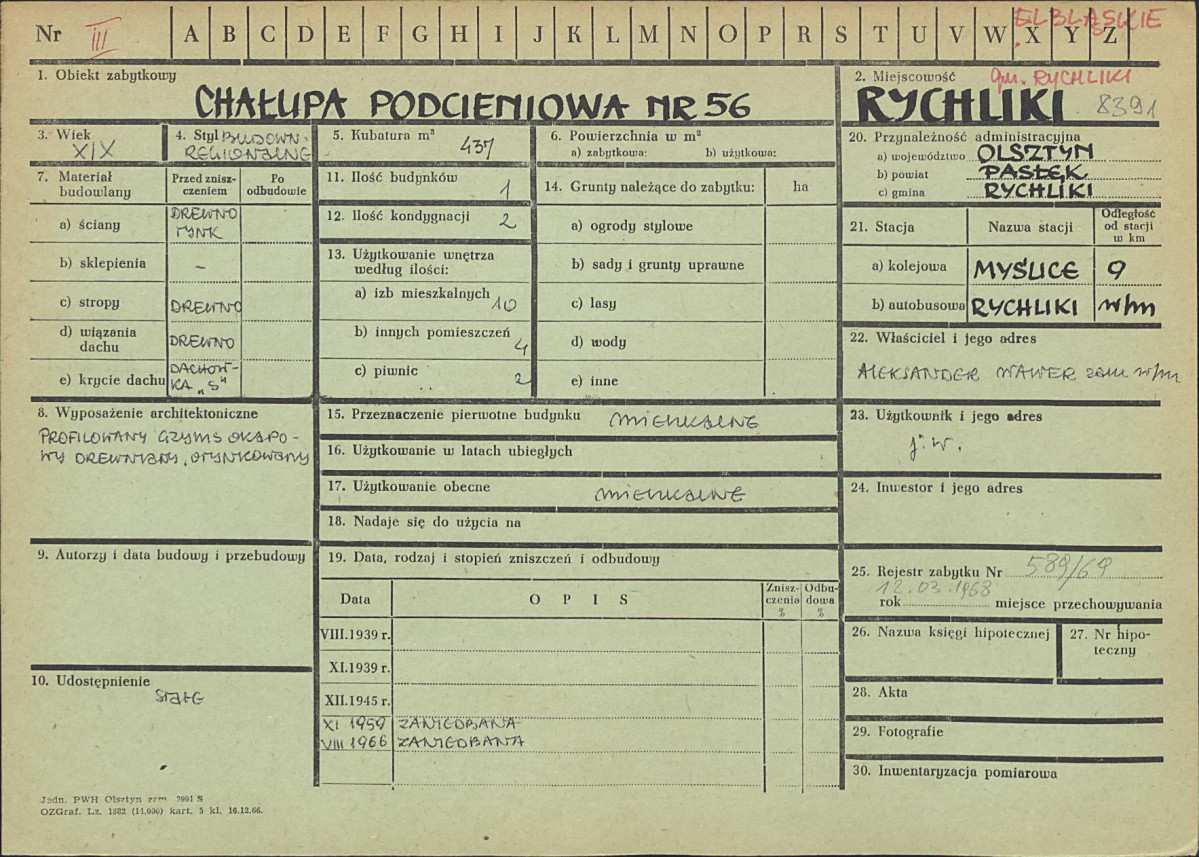 Nr III A B C D E F G H I J K L M N O P R S T U V W X Y Z ELBLĄSKIE
1. Obiekt zabytkowy
CHAŁUPA PODCIENIOWA NR 56
2. Miejscowość gm. RYCHLIKI
RYCHLIKI 8391
3. Wiek
XIX
4. Styl BUDOWN-
REGIONALNE
5. Kubatura m³
437
6. Powierzchnia w m²
a) zabytkowa: b) użytkowa:
7. Materiał
budowlany
Przed znisz-
czeniem
Po
odbudowie
a) ściany
DREWNO
TYNK
b) sklepienia –
c) stropy DREWNO
d) wiązania
dachu
DREWNO
e) krycie dachu
DACHÓW-
KA „S"
8. Wyposażenie architektoniczne
PROFILOWANY GZYMS OKAPO-
WY DREWNIANY, OTYNKOWANY
9. Autorzy i data budowy i przebudowy
10. Udostępnienie
STAŁE
11. Ilość budynków
1
12. Ilość kondygnacji
2
13. Użytkowanie wnętrza
według ilości:
a) izb mieszkalnych
10
b) innych pomieszczeń
4
c) piwnic
2
14. Grunty należące do zabytku: ha
a) ogrody stylowe
b) sady i grunty uprawne
c) lasy
d) wody
e) inne
15. Przeznaczenie pierwotne budynku MIESZKALNE
16. Użytkowanie w latach ubiegłych
17. Użytkowanie obecne MIESZKALNE
18. Nadaje się do użycia na
19. Data, rodzaj i stopień zniszczeń i odbudowy
Data O P I S
Znisz-
czenia
%
Odbu-
dowa
%
VIII.1939 r.
XI.1939 r.
XII.1945 r.
XI 1959 ZANIEDBANA
VIII 1966 ZANIEDBANA
20. Przynależność administracyjna
a) województwo OLSZTYN
b) powiat PASŁĘK
c) gmina RYCHLIKI
21. Stacja Nazwa stacji
Odległość
od stacji
w km
a) kolejowa MYŚLICE 9
b) autobusowa RYCHLIKI w/m
22. Właściciel i jego adres
ALEKSANDER WAWER zam. w/m
23. Użytkownik i jego adres
j. w.
24. Inwestor i jego adres
25. Rejestr zabytku Nr 589/69
12.03.1968
rok miejsce przechowywania
26. Nazwa księgi hipotecznej
27. Nr hipo-
teczny
28. Akta
29. Fotografie
30. Inwentaryzacja pomiarowa
Jedn. PWH Olsztyn zam. 2991 S
OZGraf. Lz. 1882 (11.000) kart. 5 kl. 16.12.66.